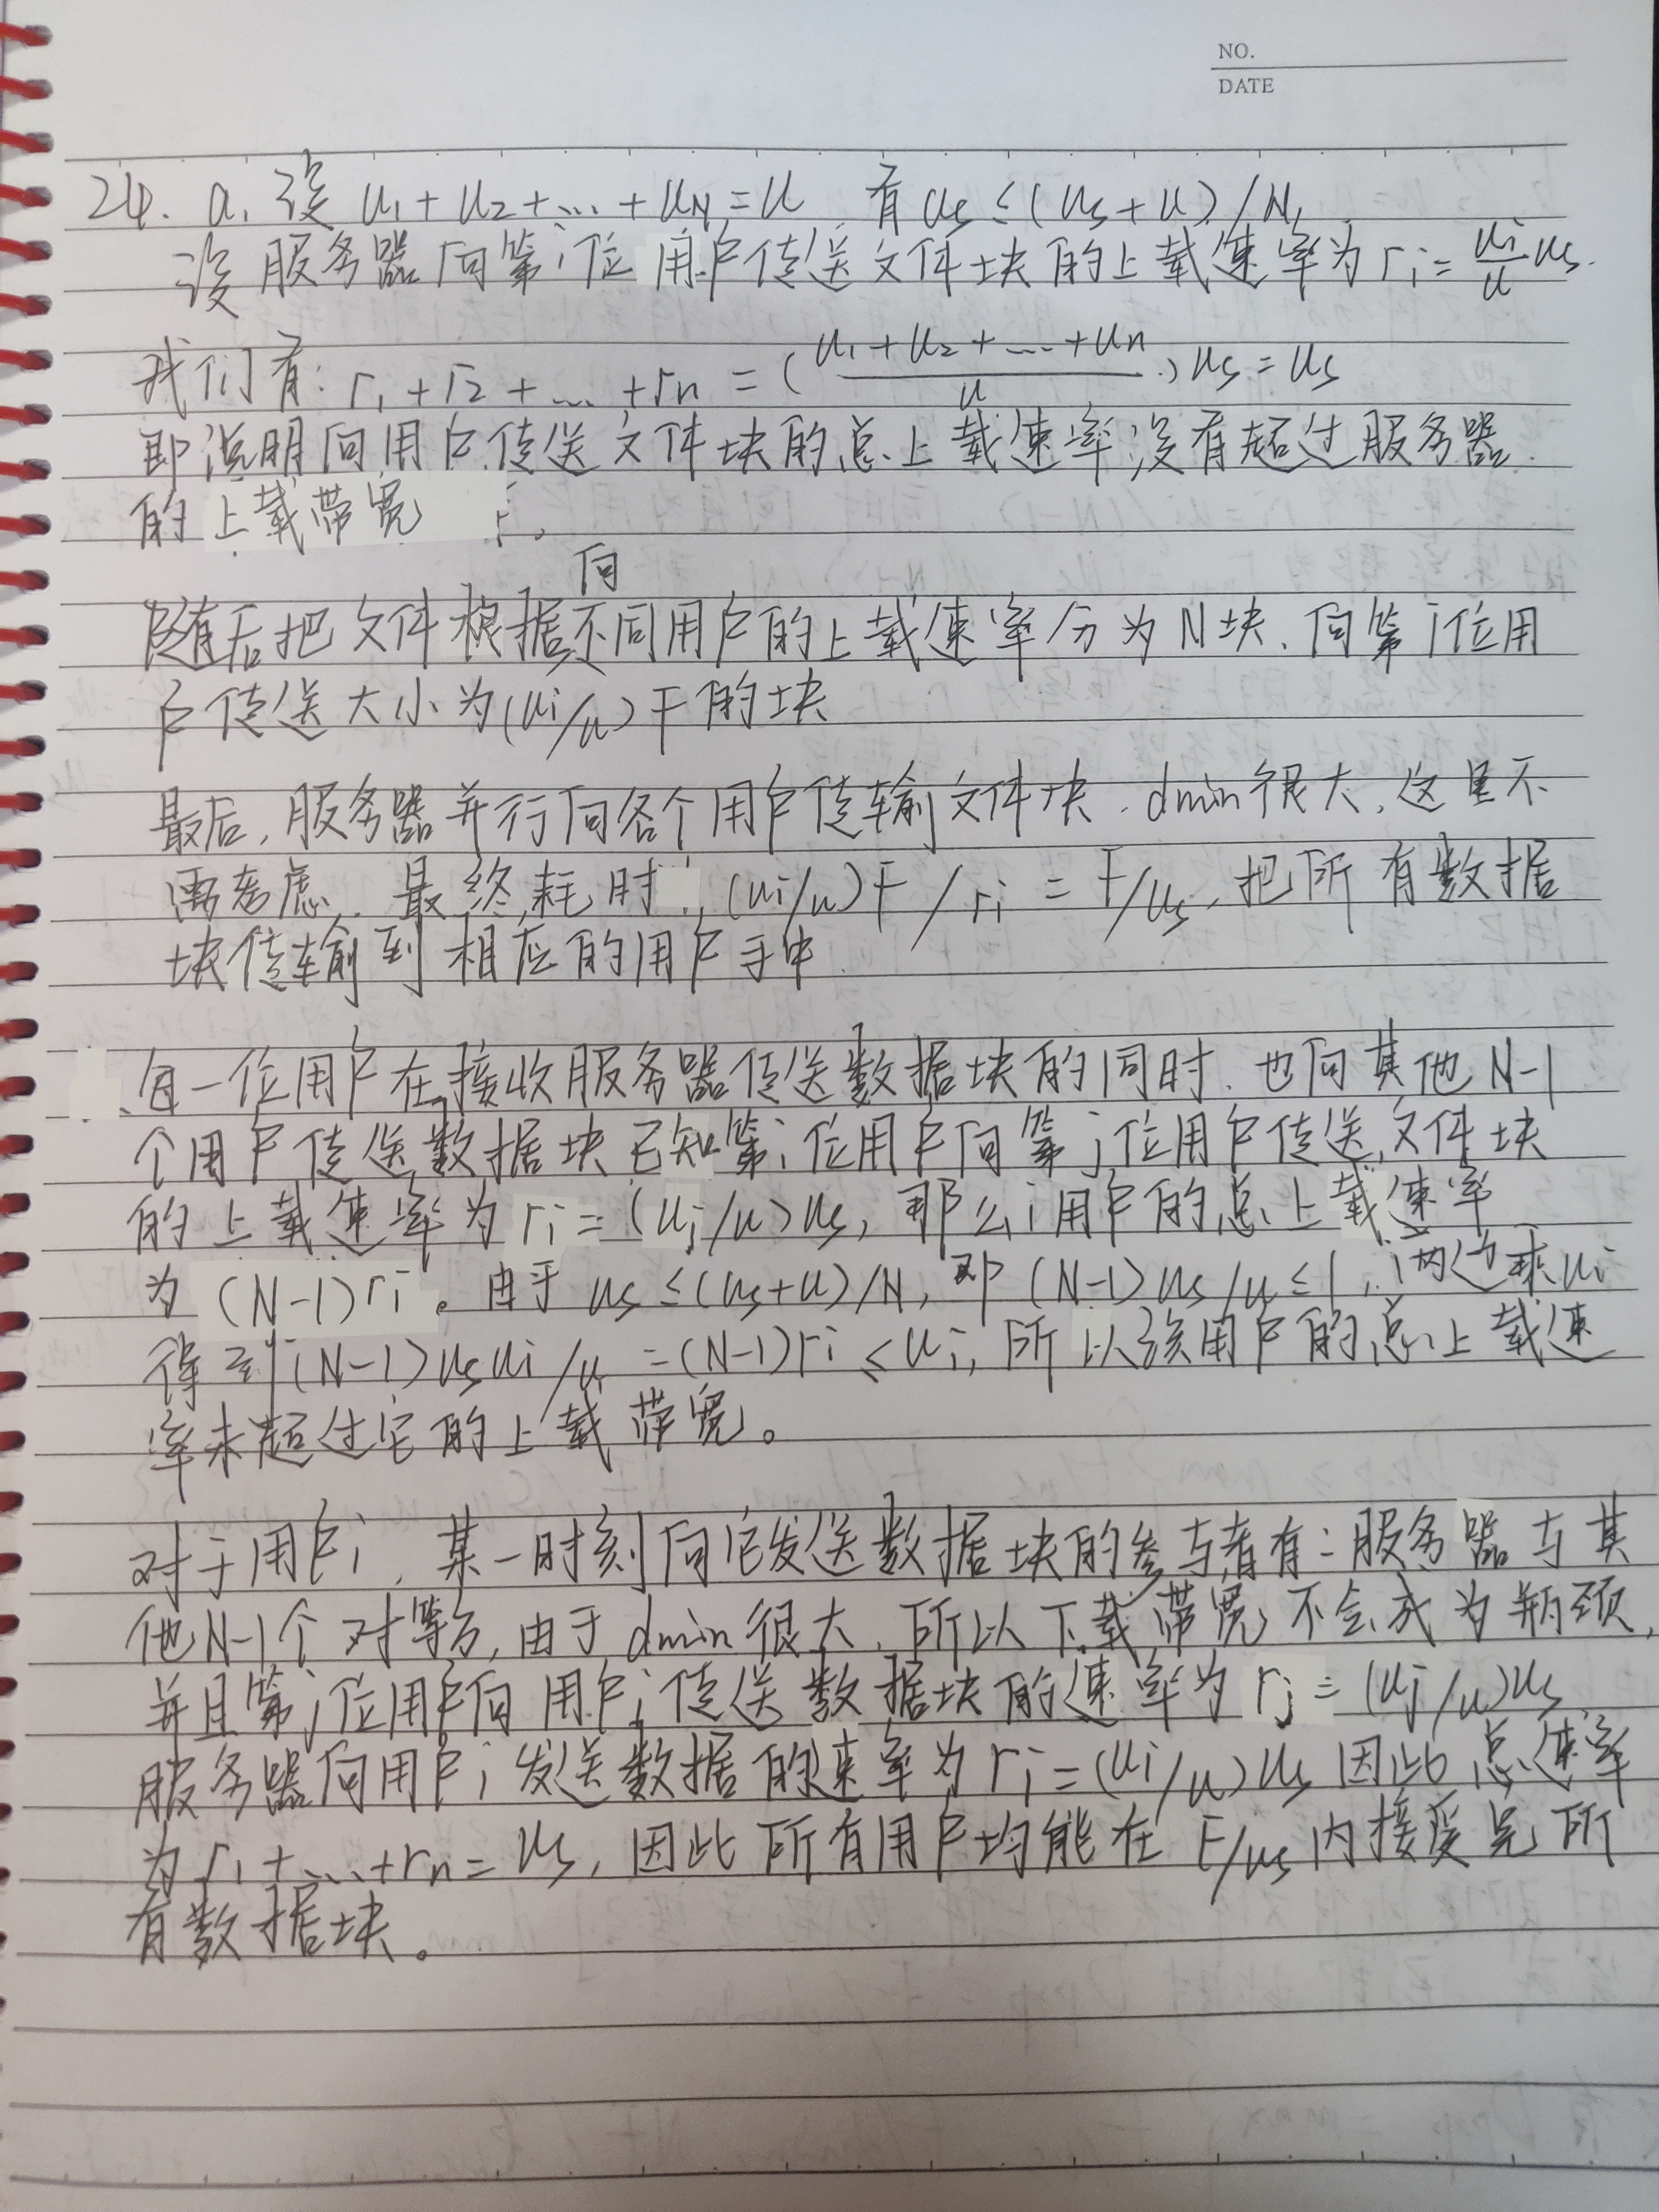 NO.
DATE
24. a. 设 u₁+u₂+...+u_N=u 有 us≤(us+u)/N,
设服务器向第i位用户传送文件块的上载速率为 rᵢ= uᵢ/u us.
我们有: r₁+r₂+...+rn = (u₁+u₂+...+un / u)us=us
即说明向用户传送文件块的总上载速率没有超过服务器
的上载带宽。
向
随后把文件根据不同用户的上载速率分为N块、向第i位用
户传送大小为(uᵢ/u)F的块
最后, 服务器并行向各个用户传输文件块. dmin很大, 这里不
需考虑. 最终耗时: (uᵢ/u)F/rᵢ = F/us, 把所有数据
块传输到相应的用户手中.
每一位用户在接收服务器传送数据块的同时. 也向其他N-1
个用户传送数据块已知第i位用户向第j位用户传送文件块
的上载速率为 rᵢ=(uⱼ/u)us, 那么i用户的总上载速率
为 (N-1)rᵢ。由于 us≤(us+u)/N, 即 (N-1)us/u≤1, 两边乘uᵢ
得到(N-1)usuᵢ/u=(N-1)rᵢ<uᵢ, 所以该用户的总上载速
率未超过它的上载带宽。
对于用户i, 某一时刻向它发送数据块的参与者有: 服务器与其
他N-1个对等方, 由于dmin很大, 所以下载带宽不会成为瓶颈,
并且第j位用户向用户i传送数据块的速率为 rⱼ=(uⱼ/u)us
服务器向用户i发送数据的速率为 rᵢ=(uᵢ/u)us 因此总速率
为 r₁+...+rn=us, 因此所有用户均能在 F/us内接受完所
有数据块。